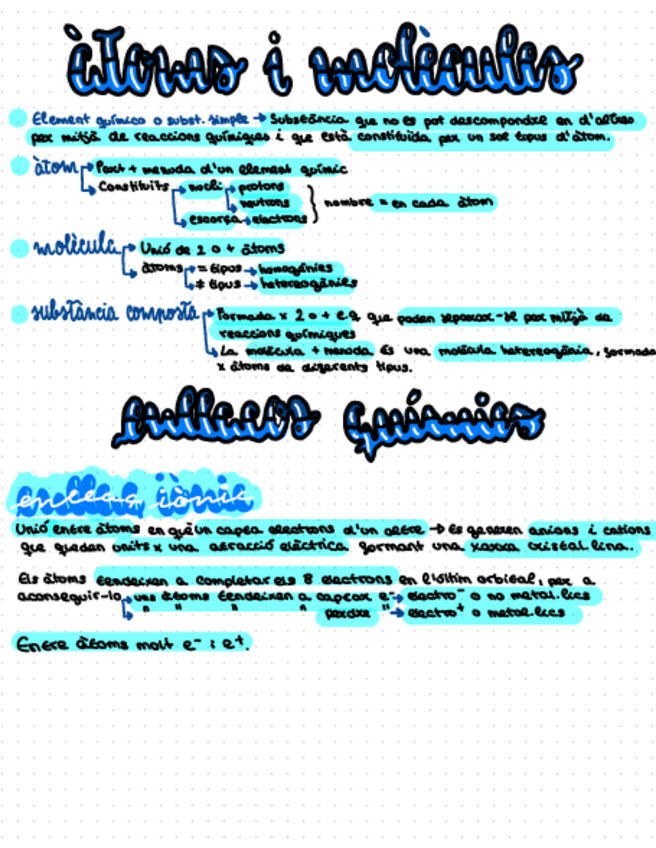 àToms i molècules
Element químico o subst. simple → Substància que no es pot descompondre en d'altres
per mitjà de reaccions químiques i que està constituïda per un sol tipus d'àtom.
àtom → Part + menuda d'un element químic
→ Constituïts → nucli → protons
→ neutrons } nombre = en cada àtom
→ escorça → electrons
molècula → Unió de 2 o + àtoms
→ àtoms → = tipus → homogènies
→ ≠ tipus → heterogènies
substància composta → Formada x 2 o + e.q. que poden separar-se per mitjà de
reaccions químiques
→ La molècula + menuda és una molècula heterogènia, formada
x àtoms de diferents tipus.
Enllaços Químics
enllaç iònic
Unió entre àtoms en què un capta electrons d'un altre → Es generen anions i cations
que queden units x una atracció elèctrica formant una xarxa cristal·lina.
Els àtoms tendeixen a completar els 8 electrons en l'últim orbital, per a
aconseguir-lo → uns àtoms tendeixen a captar e⁻ → electro⁻ o no metàl·lics
→ " " " perdre " → electro⁺ o metàl·lics
Entre àtoms molt e⁻ i e⁺.